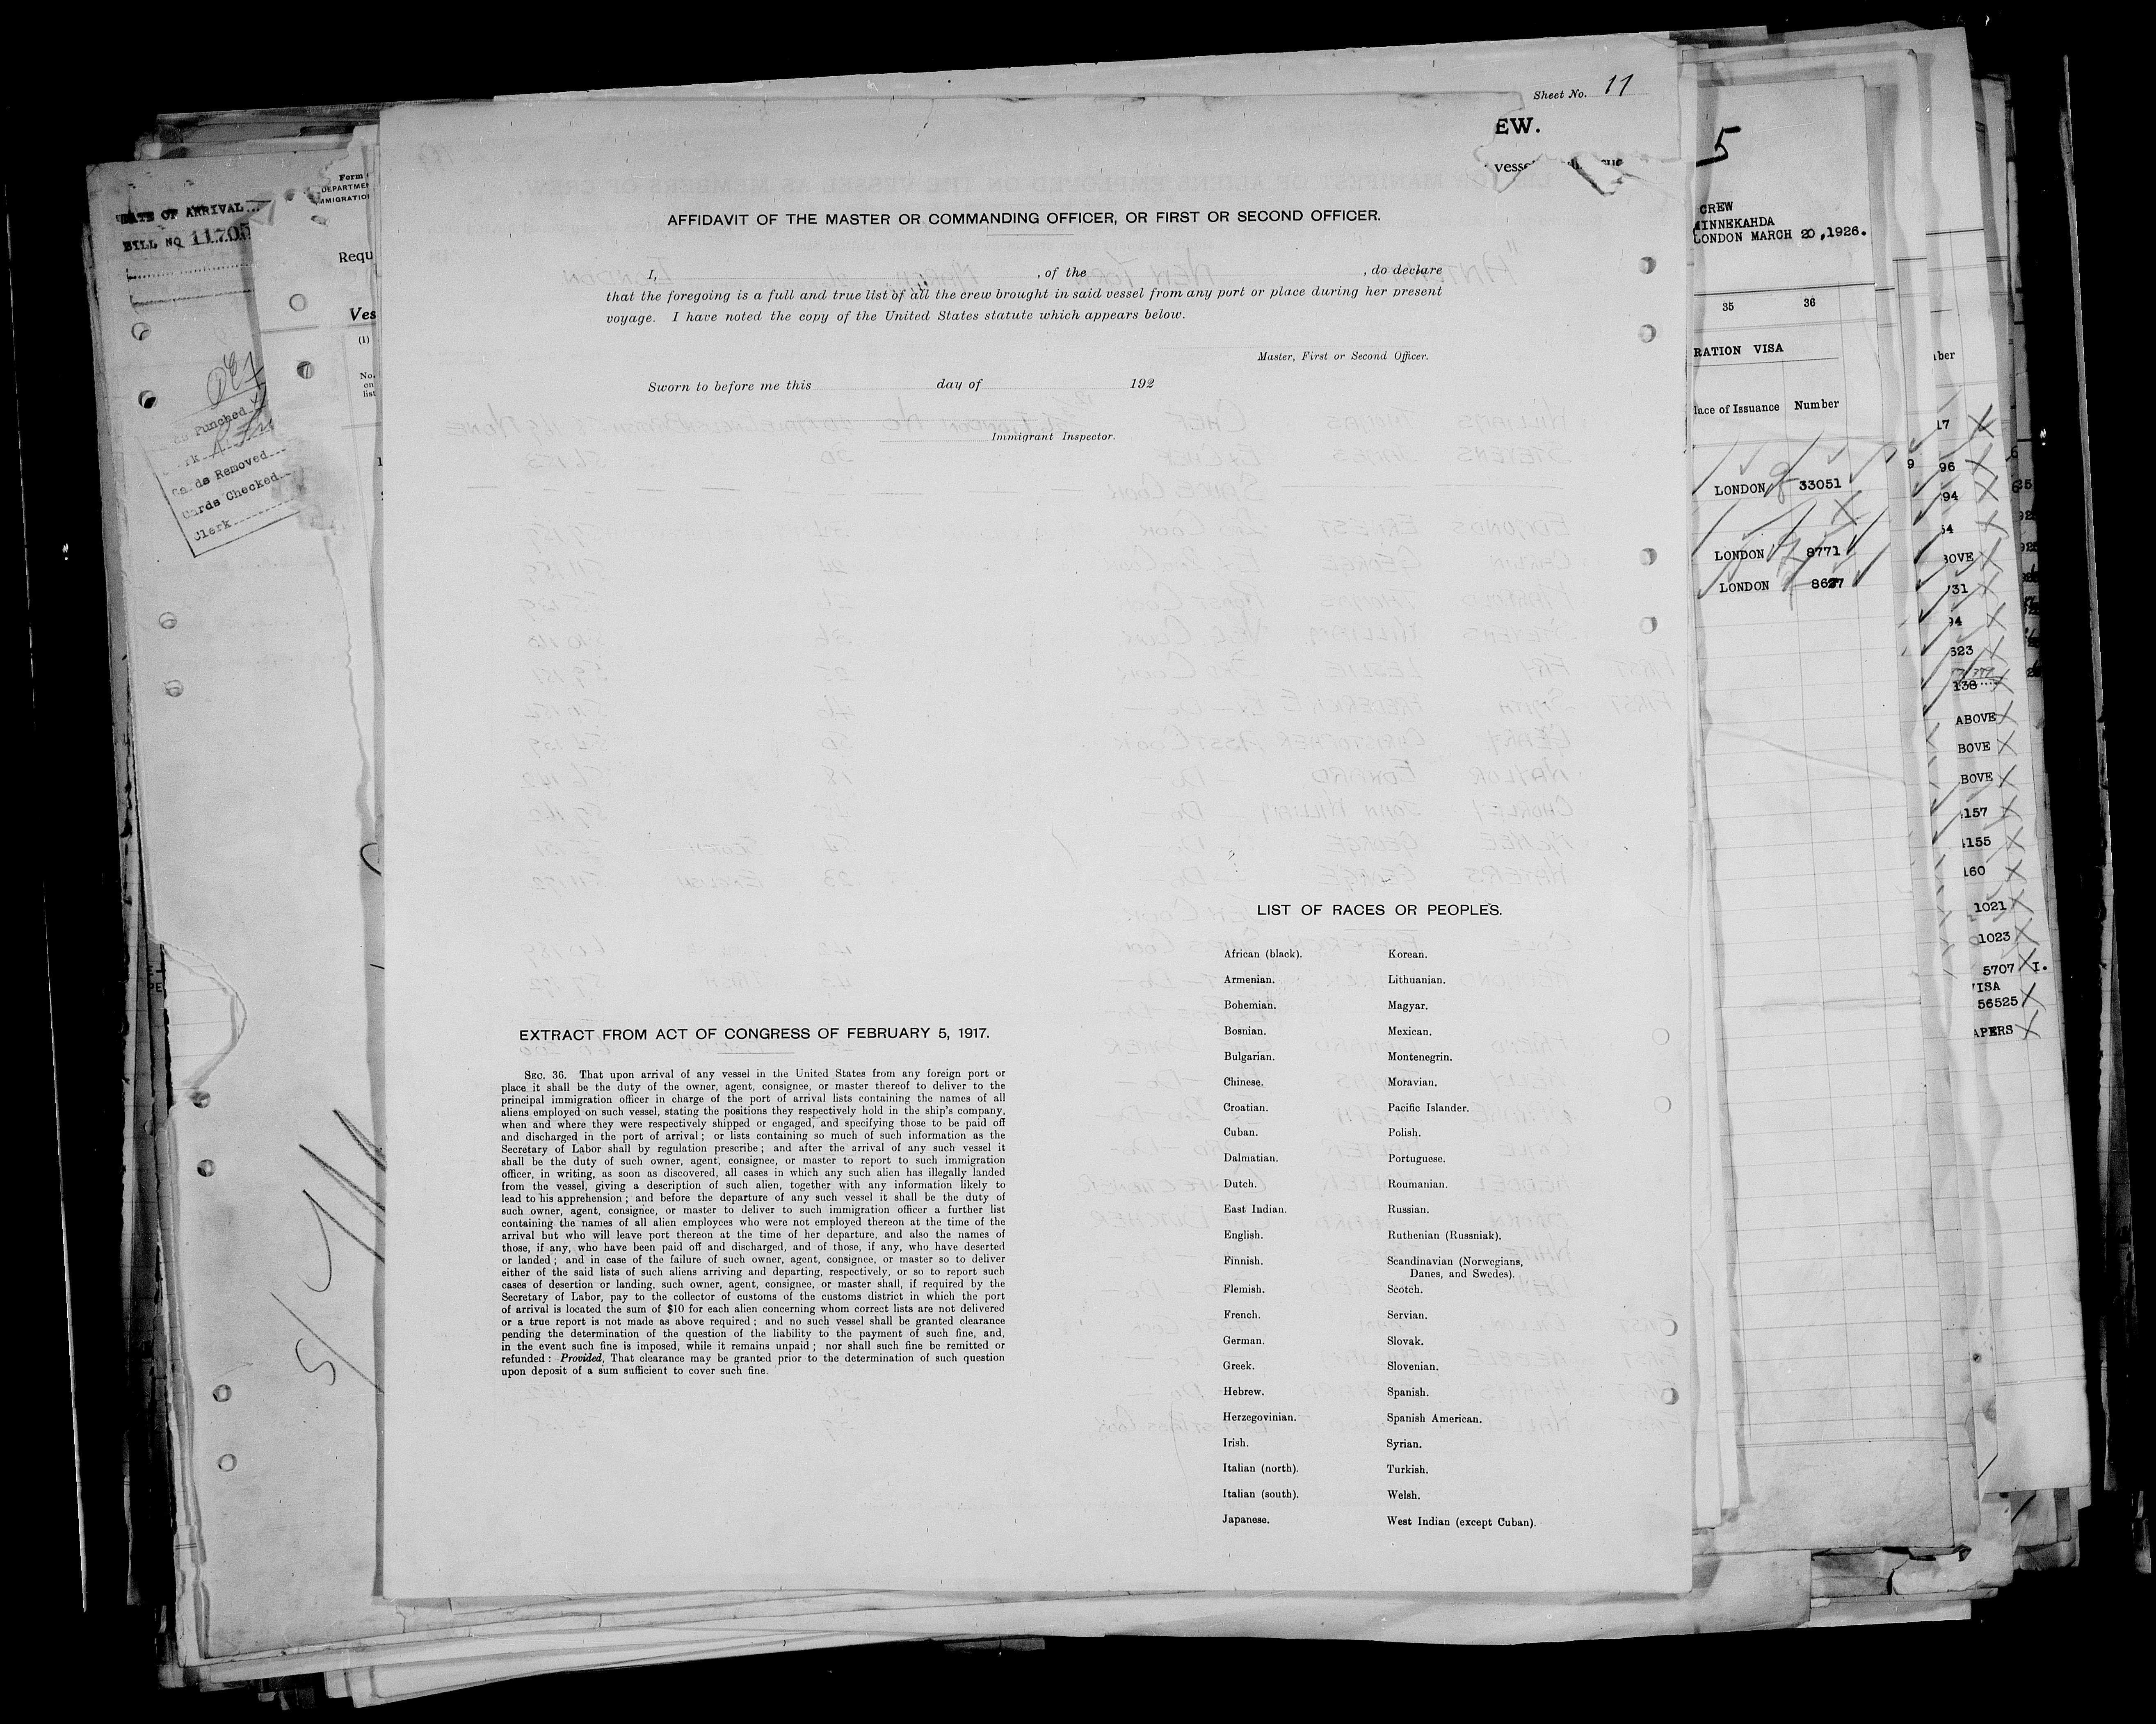 Sheet No. 11
EW.
AFFIDAVIT OF THE MASTER OR COMMANDING OFFICER, OR FIRST OR SECOND OFFICER.
I, , of the , do declare
that the foregoing is a full and true list of all the crew brought in said vessel from any port or place during her present
voyage. I have noted the copy of the United States statute which appears below.
Master, First or Second Officer.
Sworn to before me this day of 192
Immigrant Inspector.
EXTRACT FROM ACT OF CONGRESS OF FEBRUARY 5, 1917.
SEC. 36. That upon arrival of any vessel in the United States from any foreign port or
place it shall be the duty of the owner, agent, consignee, or master thereof to deliver to the
principal immigration officer in charge of the port of arrival lists containing the names of all
aliens employed on such vessel, stating the positions they respectively hold in the ship's company,
when and where they were respectively shipped or engaged, and specifying those to be paid off
and discharged in the port of arrival; or lists containing so much of such information as the
Secretary of Labor shall by regulation prescribe; and after the arrival of any such vessel it
shall be the duty of such owner, agent, consignee, or master to report to such immigration
officer, in writing, as soon as discovered, all cases in which any such alien has illegally landed
from the vessel, giving a description of such alien, together with any information likely to
lead to his apprehension; and before the departure of any such vessel it shall be the duty of
such owner, agent, consignee, or master to deliver to such immigration officer a further list
containing the names of all alien employees who were not employed thereon at the time of the
arrival but who will leave port thereon at the time of her departure, and also the names of
those, if any, who have been paid off and discharged, and of those, if any, who have deserted
or landed; and in case of the failure of such owner, agent, consignee, or master so to deliver
either of the said lists of such aliens arriving and departing, respectively, or so to report such
cases of desertion or landing, such owner, agent, consignee, or master shall, if required by the
Secretary of Labor, pay to the collector of customs of the customs district in which the port
of arrival is located the sum of $10 for each alien concerning whom correct lists are not delivered
or a true report is not made as above required; and no such vessel shall be granted clearance
pending the determination of the question of the liability to the payment of such fine, and,
in the event such fine is imposed, while it remains unpaid; nor shall such fine be remitted or
refunded: Provided, That clearance may be granted prior to the determination of such question
upon deposit of a sum sufficient to cover such fine.
LIST OF RACES OR PEOPLES.
African (black). Korean.
Armenian. Lithuanian.
Bohemian. Magyar.
Bosnian. Mexican.
Bulgarian. Montenegrin.
Chinese. Moravian.
Croatian. Pacific Islander.
Cuban. Polish.
Dalmatian. Portuguese.
Dutch. Roumanian.
East Indian. Russian.
English. Ruthenian (Russniak).
Finnish. Scandinavian (Norwegians,
Danes, and Swedes).
Flemish. Scotch.
French. Servian.
German. Slovak.
Greek. Slovenian.
Hebrew. Spanish.
Herzegovinian. Spanish American.
Irish. Syrian.
Italian (north). Turkish.
Italian (south). Welsh.
Japanese. West Indian (except Cuban).
DATE OF ARRIVAL
BILL NO 11705
Punched
Cards Removed
Cards Checked
Clerk
Form
DEPARTME
MMIGRATIO
Requ
Ves
(1)
No.
on
list
5
CREW
MINNEKAHDA
LONDON MARCH 20, 1926.
35 36
RATION VISA
lace of Issuance Number
LONDON 33051
LONDON 8771
LONDON 8627
ber
17
96
94
54
BOVE
731
94
623
138
ABOVE
BOVE
BOVE
157
155
160
1021
1023
5707 I.
VISA
56525
APERS